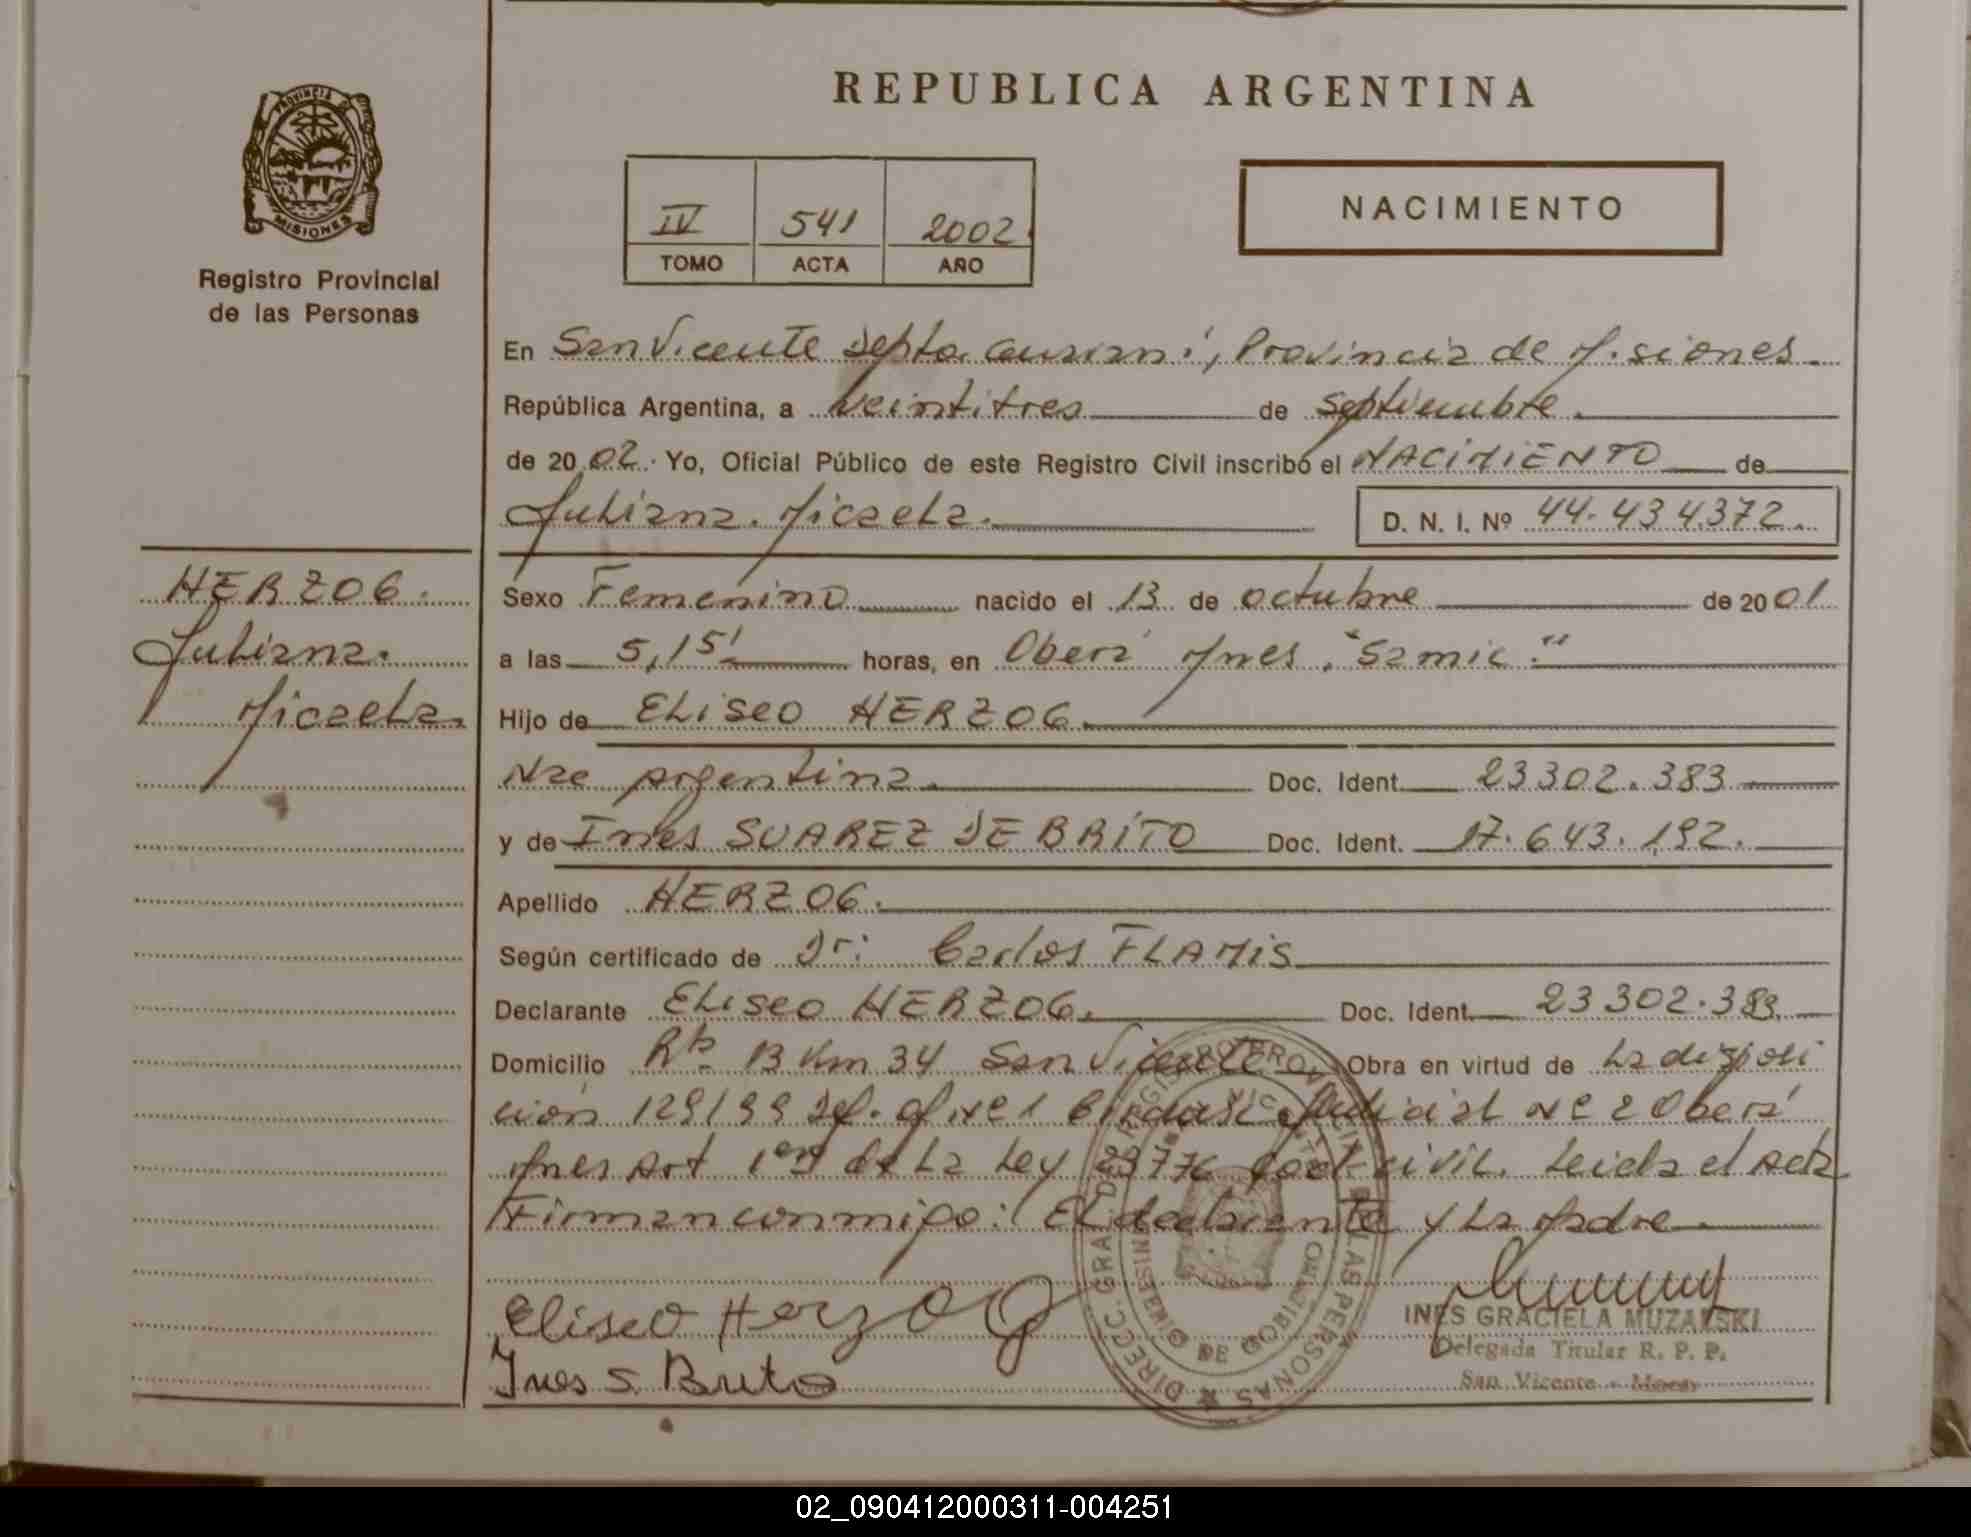 REPUBLICA ARGENTINA
PROVINCIA
MISIONES
Registro Provincial
de las Personas
IV 541 2002
TOMO ACTA AÑO
NACIMIENTO
En San Vicente Depto. Guarani, Provincia de Misiones.
República Argentina, a veintitres de septiembre.
de 20 02. Yo, Oficial Público de este Registro Civil inscribo el NACIMIENTO de
Juliana. Micaela. D. N. I. Nº 44.434.372.
HERZOG.
Juliana.
Micaela.
Sexo Femenino nacido el 13 de octubre de 20 01
a las 5,15' horas, en Oberá Mnes. "Samic."
Hijo de Eliseo HERZOG.
Nac argentina. Doc. Ident. 23302.383
y de Ines SUAREZ DE BRITO Doc. Ident. 17.643.192.
Apellido HERZOG.
Según certificado de Dr: Carlos FLAMIS
Declarante Eliseo HERZOG. Doc. Ident. 23302.383.
Domicilio Rta 13 Km 34 San Vicente Obra en virtud de la disposi
ción 129/99 Def. of. Nº 1 Judicial Nº 2 Oberá
Mnes Art 1º de la Ley civil. Leida el acta
Firman conmigo: El declarante y la Madre
Eliseo Herzog
Ines S. Brito
INES GRACIELA MUZALSKI
Delegada Titular R. P. P.
San Vicente - Mnes.
DIRECC. GRAL. DE REGISTRO PROVINCIAL DE LAS PERSONAS
02_090412000311-004251